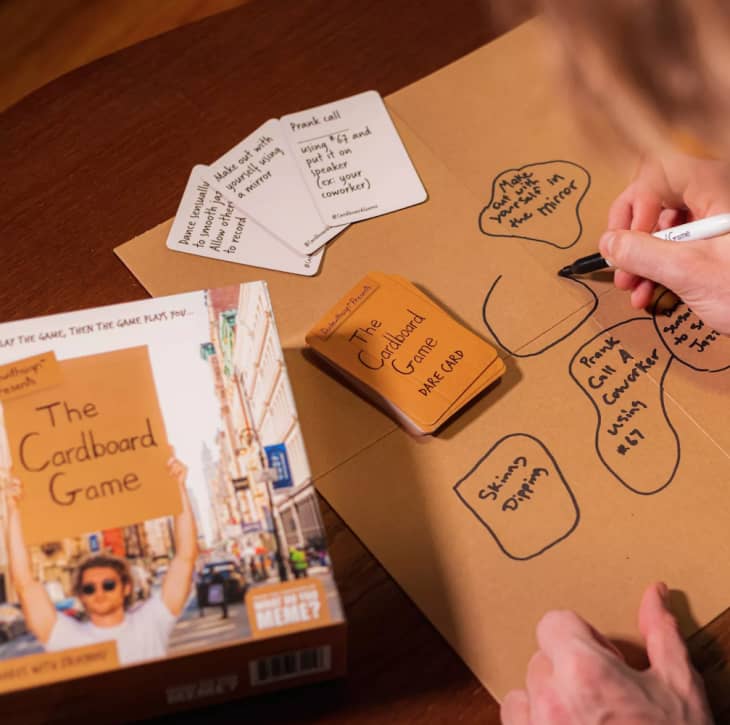 Dance sensually
to smooth jaz
Allow other
to record
Make out with
yourself using
a mirror
Prank call
using *67 and
put it on
speaker
(ex: your
coworker)
@CardboardGame
Presents
The
Cardboard
Game
DARE CARD
LAY THE GAME, THEN THE GAME PLAYS YOU...
The
Cardboard
Game
WHAT DO YOU
MEME?
Make
out with
yourself in
the mirror
Game
sensua
to s
Jaz
Prank
Call A
Coworker
using
*67
Skinny
Dipping